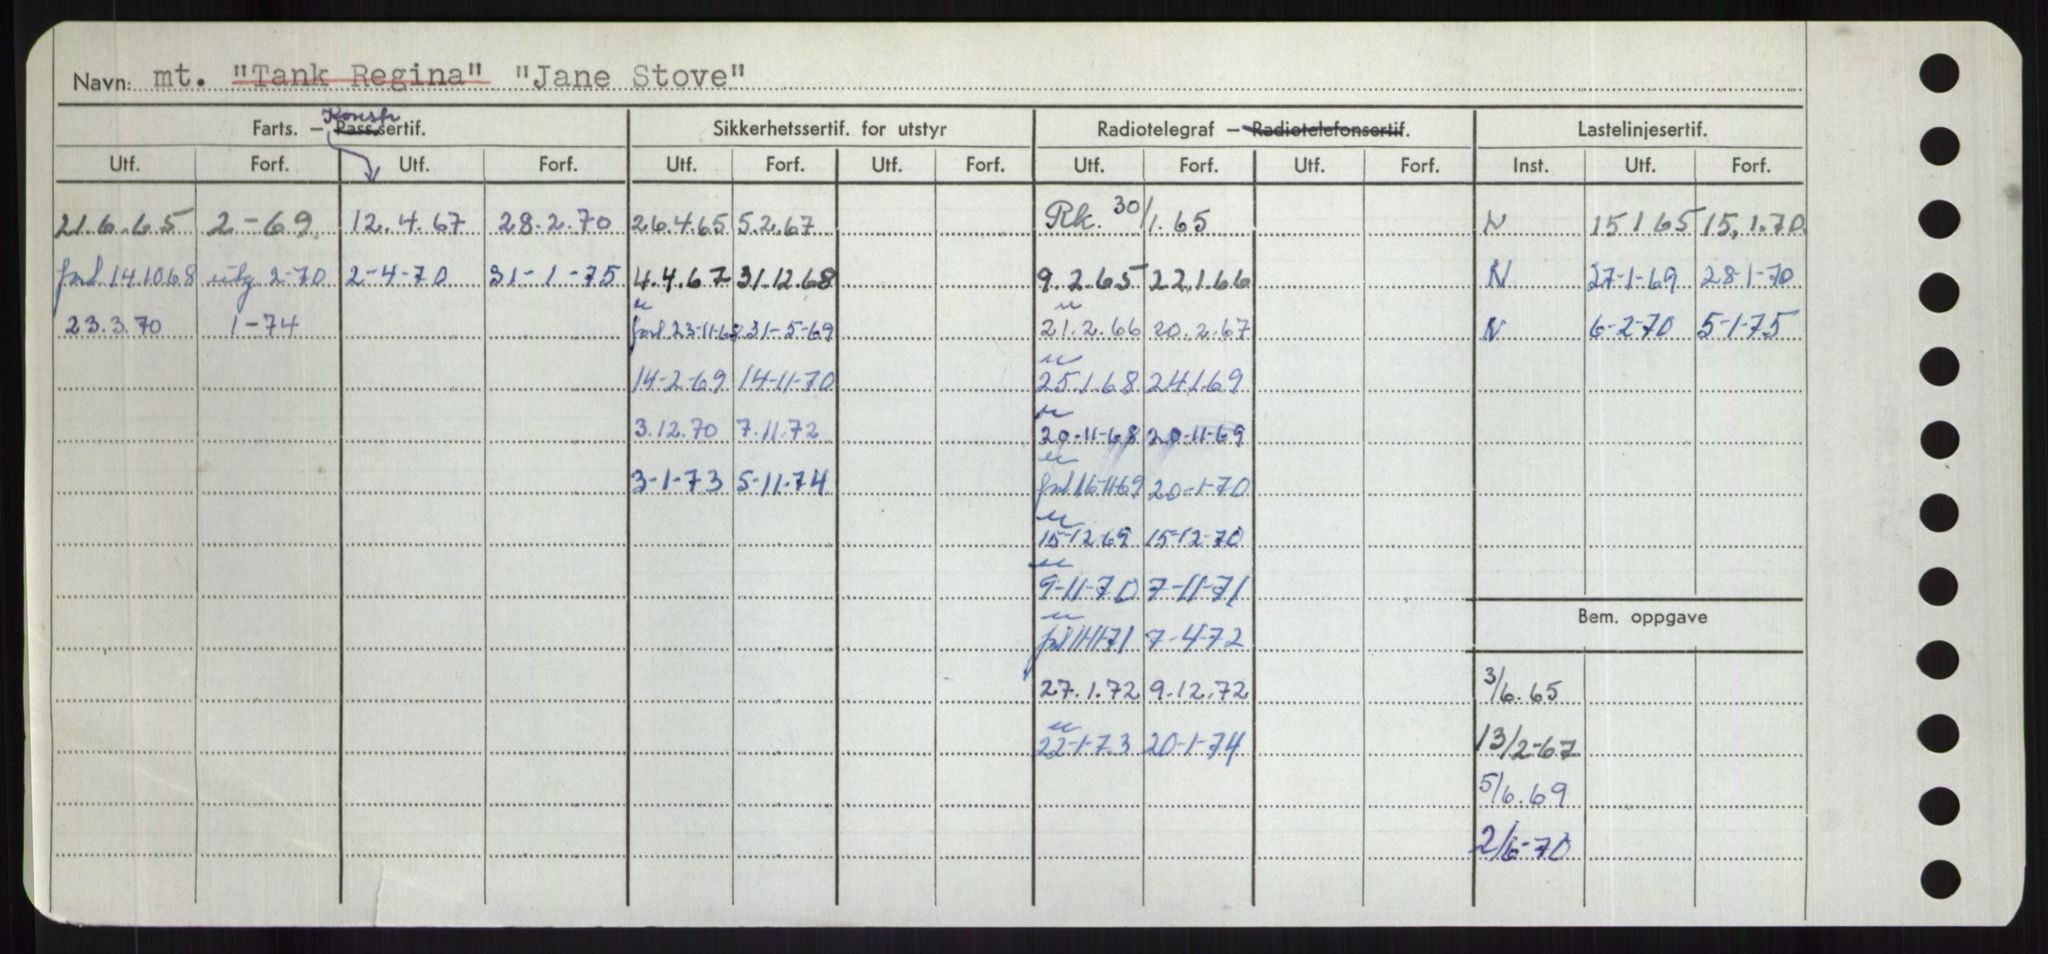 Navn: mt. "Tank Regina" "Jane Stove"
Konstr
Farts. — Pass.sertif. Sikkerhetssertif. for utstyr Radiotelegraf — Radiotelefonsertif. Lastelinjesertif.
Utf. Forf. Utf. Forf. Utf. Forf. Utf. Forf. Utf. Forf. Utf. Forf. Inst. Utf. Forf.
21.6.65 2-69. 12.4.67 28.2.70 26.4.65 5.2.67 Rk. 30/1.65 N 15 1 65 15.1.70
forl 14.10.68 utg. 2-70 2-4-70 31-1-75 4.4.67 31.12.68 9.2.65 22.1.66 N 27-1-69 28-1-70
23.3.70 1-74 forl 23-11-68 31-5-69 21.2.66 20.2.67 N 6-2-70 5-1-75
14-2-69 14-11-70 25.1.68 24.1.69
3.12.70 7.11.72 20-11-68 20-11-69
3-1-73 5-11-74 forl 16-11-69 20-1-70
15-12-69 15-12-70
9-11-70 7-11-71
Bem. oppgave
forl 11-11-71 7-4-72
27.1.72 9.12.72 3/6.65
22-1-73 20-1-74 13/2-67
5/6.69
2/6-70